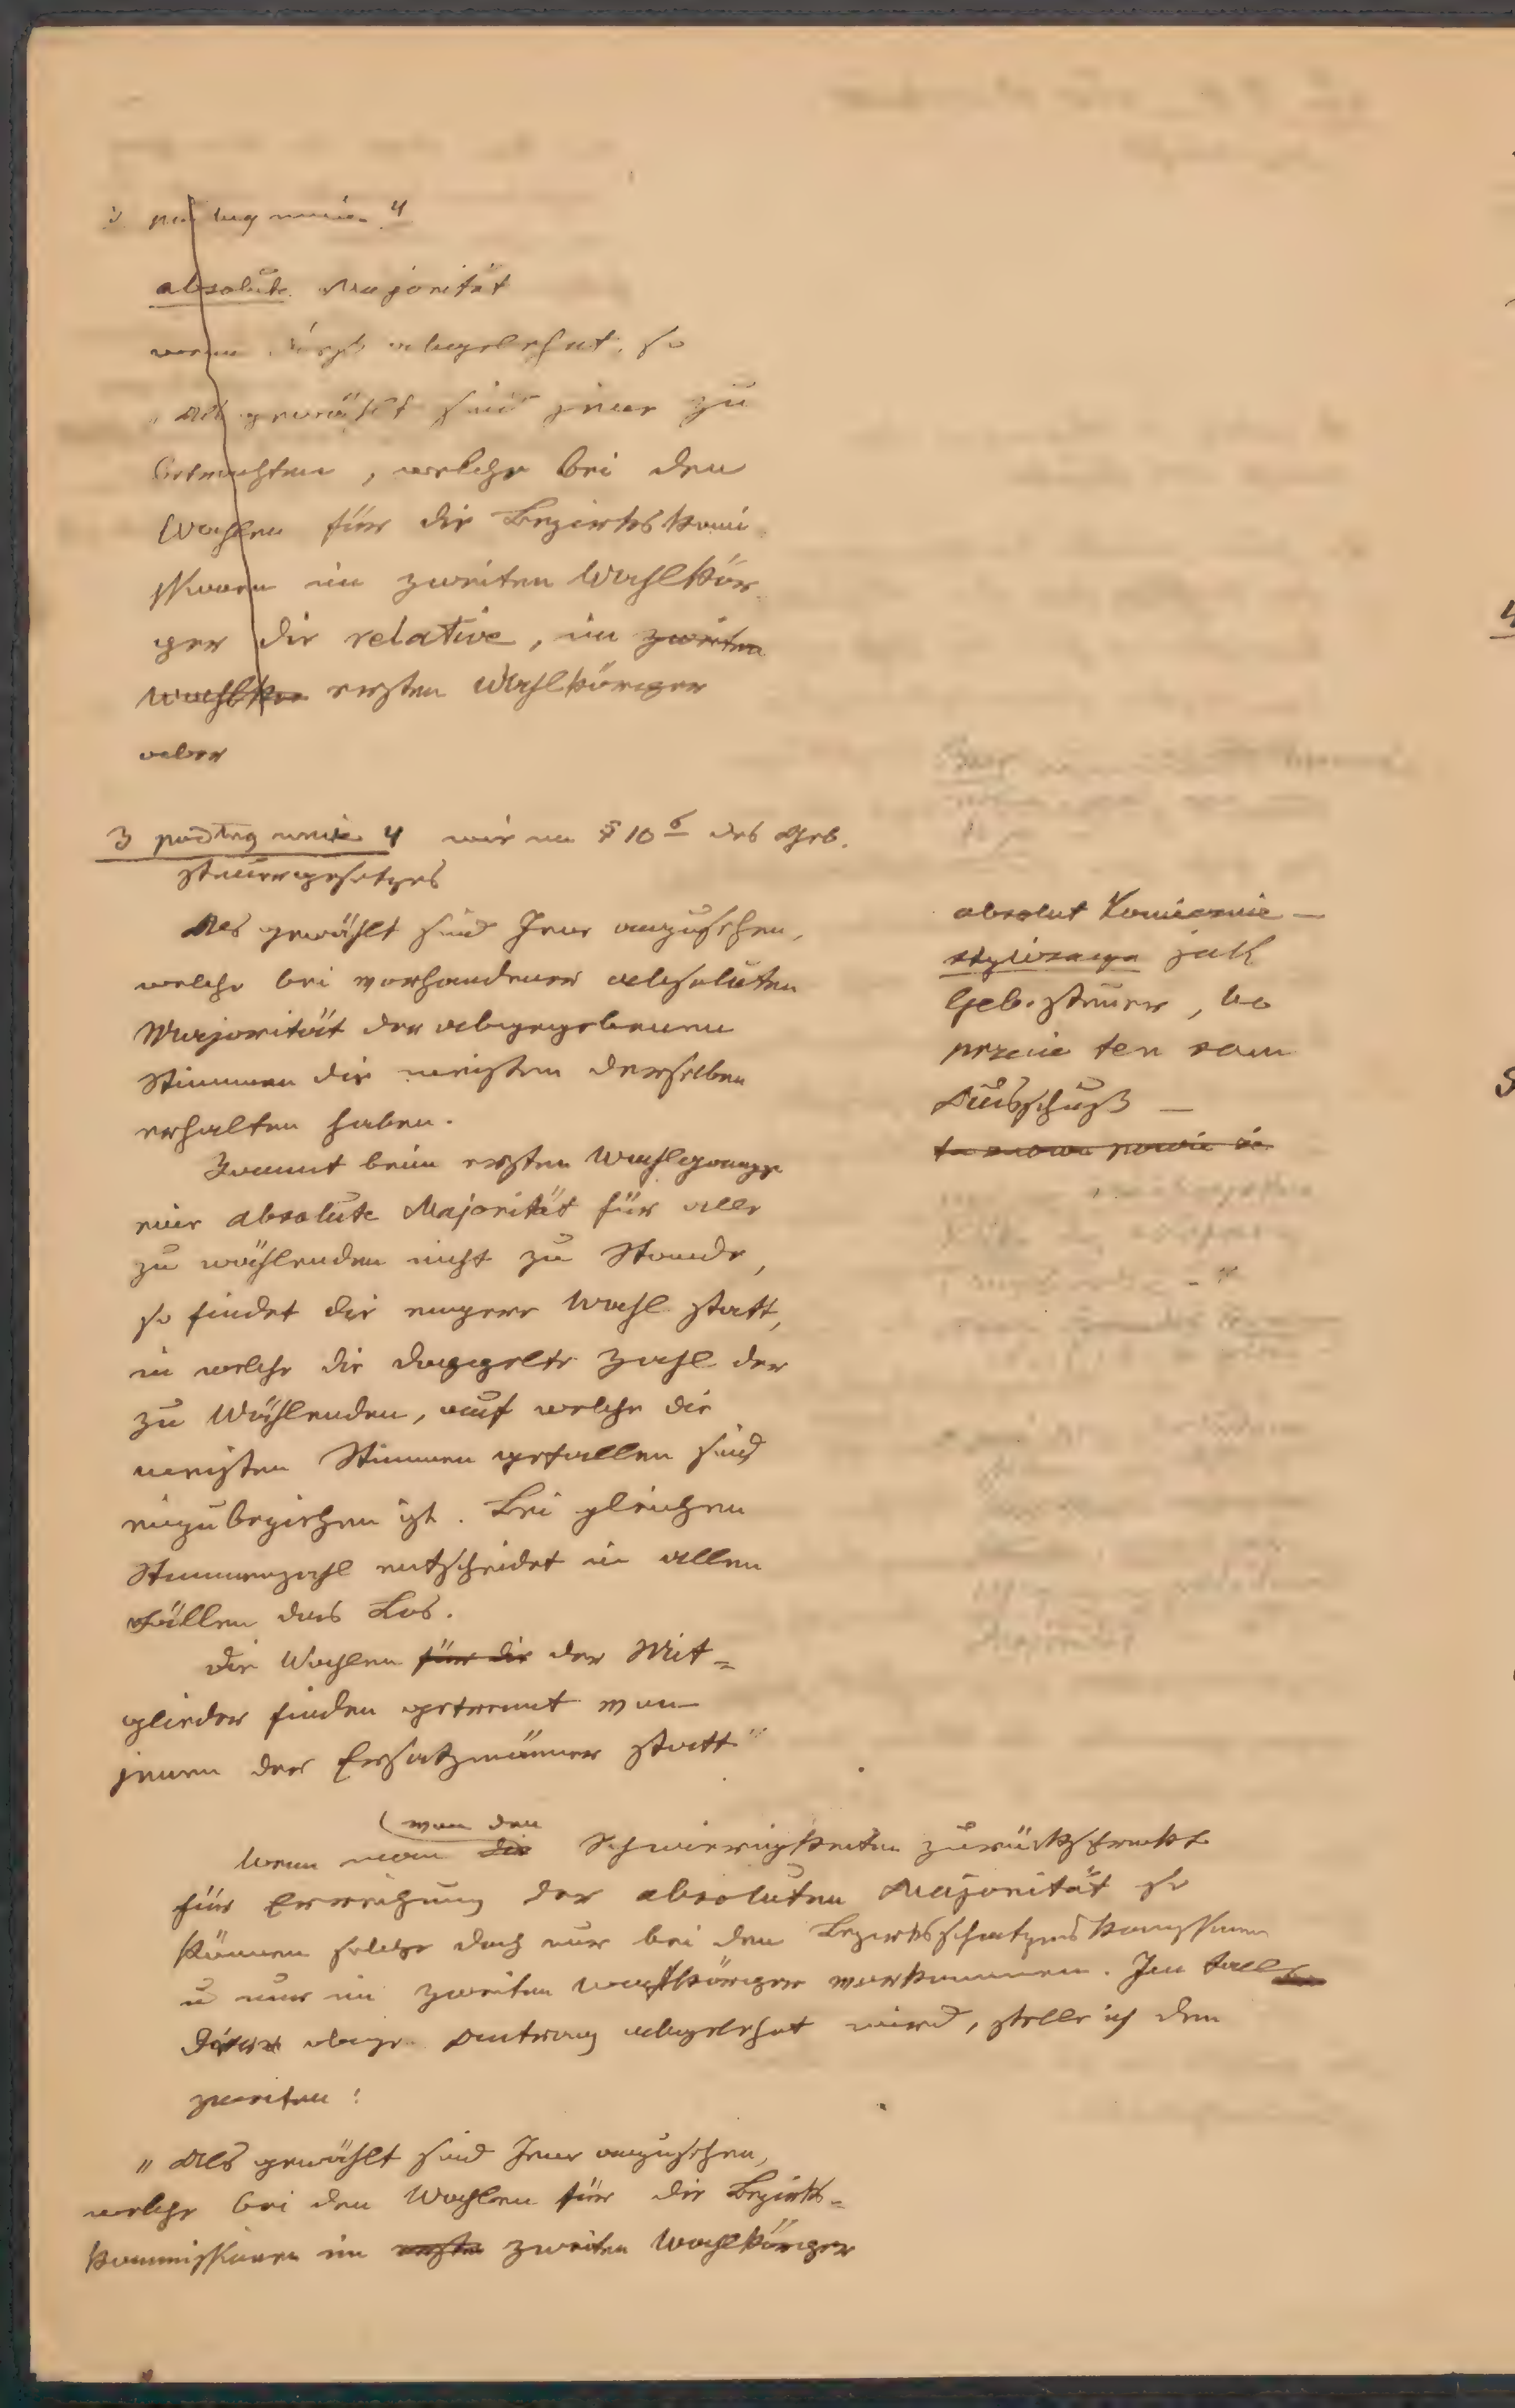 3 podług mnie 4
absolute Majorität
wenn abgelehnt, so
„Als gewählt sind jene zu
betrachten, welche bei den
Wahlen für die Bezirkskomi
ssionen im zweiten Wahlkör
per die relative, im zweiten
Wahlkör ersten Wahlkörper
aber
3 podług mnie 4 wie im § 10 6 des Geb.
steuergesetzes
Als gewählt sind Jene anzusehen,
welche bei vorhandener absoluten
Majorität der abgegebenen
Stimmen die meisten derselben
erhalten haben.
Kommt beim ersten Wahlgange
eine absolute Majorität für alle
zu wählenden nicht zu Stande,
so findet die engere Wahl statt,
in welche die doppelte Zahl der
zu Wählenden, auf welche die
meisten Stimmen gefallen sind
einzubeziehen ist. Bei gleichen
Stimmenzahl entscheidet in allen
Fällen das Los.
Die Wahlen für die der Mit=
glieder finden getrennt von
jenen der Ersatzmänner statt"
absolut koniecznie —
stylizacya jak
Geb. steuer, bo
przecie ten sam
Ausschuß —
to znowu powie że
von den
Wenn man die Schwierigkeiten zurückschreckt
für Erreichung der absoluten Majorität so
können solche doch nur bei den Bezirksschatzungskomissionen
u nur im zweiten Wahlkörper vorkommen. Im Falle
dieser obige Antrag abgelehnt wird, stelle ich den
zweiten:
„Als gewählt sind Jene anzusehen,
welche bei den Wahlen für die Bezirks=
kommissionen im ersten zweiten Wahlkörper